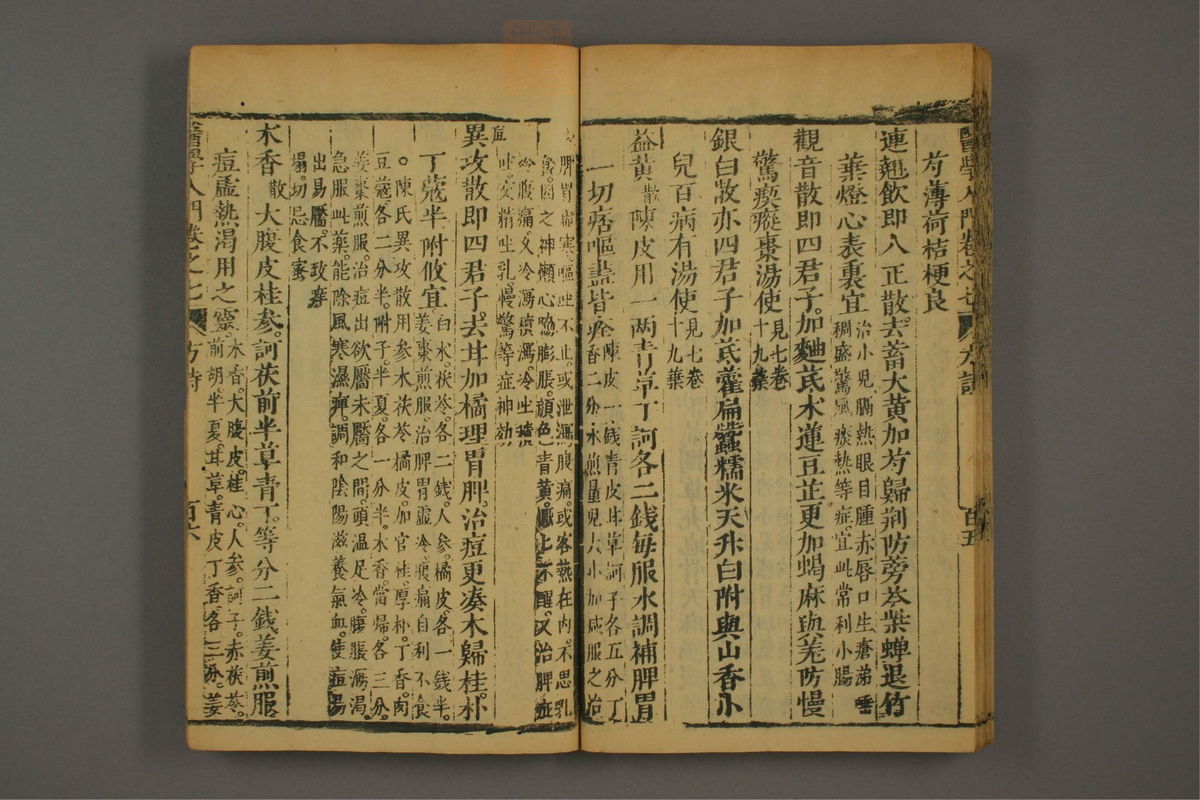 芍薄荷桔梗良
連翹飲即八正散去蓄大黃加芍歸荊防旁芩柴蟬退竹
華燈心表裏宜
治小兒膈熱眼目腫赤唇口生瘡涕唾
稠盛驚風痰熱等症宜此常利小腸
觀音散即四君子加麯芪木蓮豆芷更加蝎麻與羌防慢
驚瘈瘲棗湯使
見七卷
十九葉
銀白散亦四君子加芪藿扁蠶糯米天升白附與山香小
兒百病有湯使
見七卷
十九葉
益黃散陳皮用一两青草丁訶各二錢每服水調補脾胃
一切痞嘔蠱皆痊
陳皮一錢青皮甘草訶子各五分丁
香二分水煎量兒大小加减服之治
脾胃虛寒嘔吐不止或泄瀉腹痛或客熱在内不思乳
食因之神懶心脇膨脹顔色青黃
不醒又治脾疳
腹痛又冷瀉瀆瀉冷吐
吐交精吐乳慢驚等症神効
異攻散即四君子去甘加橘理胃脾治痘更凑木歸桂朴
丁蔻半附攸宜
白术茯苓各二錢人參橘皮各一錢半
姜棗煎服治脾胃虛冷腹痛自利不食
陳氏異攻散用參木茯苓橘皮加官桂厚朴丁香肉
豆蔻各二分半附子半夏各一分半木香當歸各三分
姜棗煎服治痘出欲靨未靨之間頭温足冷腹脹瀉渴
急服此藥能除風寒濕痺調和陰陽滋養氣血使痘易
出易靨不致癢
塌切忌食蜜
木香散大腹皮桂參訶茯前半草青丁等分二錢姜煎服
痘虛熱渴用之靈
木香大腹皮桂心人參訶子赤茯苓
前胡半夏甘草青皮丁香各三分姜
醫學入門卷之七
方詩
百六